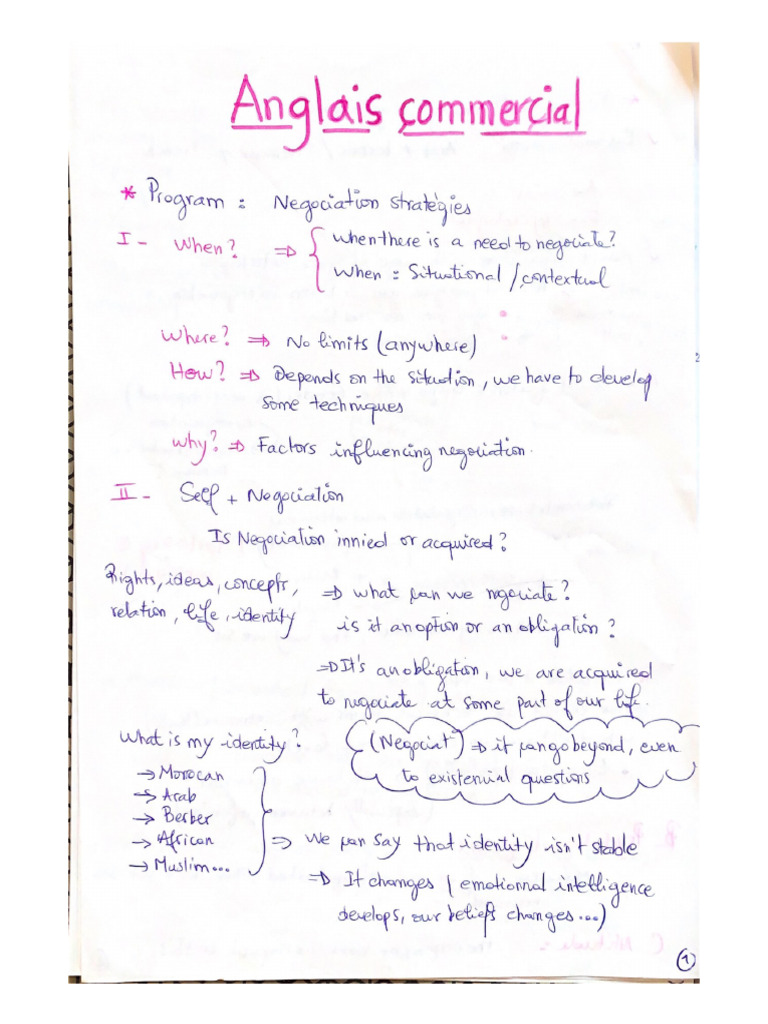 Anglais commercial
* Program : Negociation strategies
I - When? ⇒ { when there is a need to negotiate?
When = Situational / contextual
Where? ⇒ No limits (anywhere)
How? ⇒ Depends on the situation, we have to develop
some techniques
why? ⇒ Factors influencing negociation.
II - Self + Negociation
Is Negociation innied or acquired?
Rights, ideas, concepts, ⇒ what can we ngociate?
relation, life, identity is it an option or an obligation?
⇒ It's an obligation, we are acquired
to negociate at some part of our life.
What is my identity? (Negociat°) ⇒ it can go beyond, even
to existencial questions
→ Morocan
→ Arab
→ Berber
→ African ⇒ We can say that identity isn't stable
→ Muslim...
⇒ It changes ( emotionnal intelligence
develops, our beliefs changes...)
1